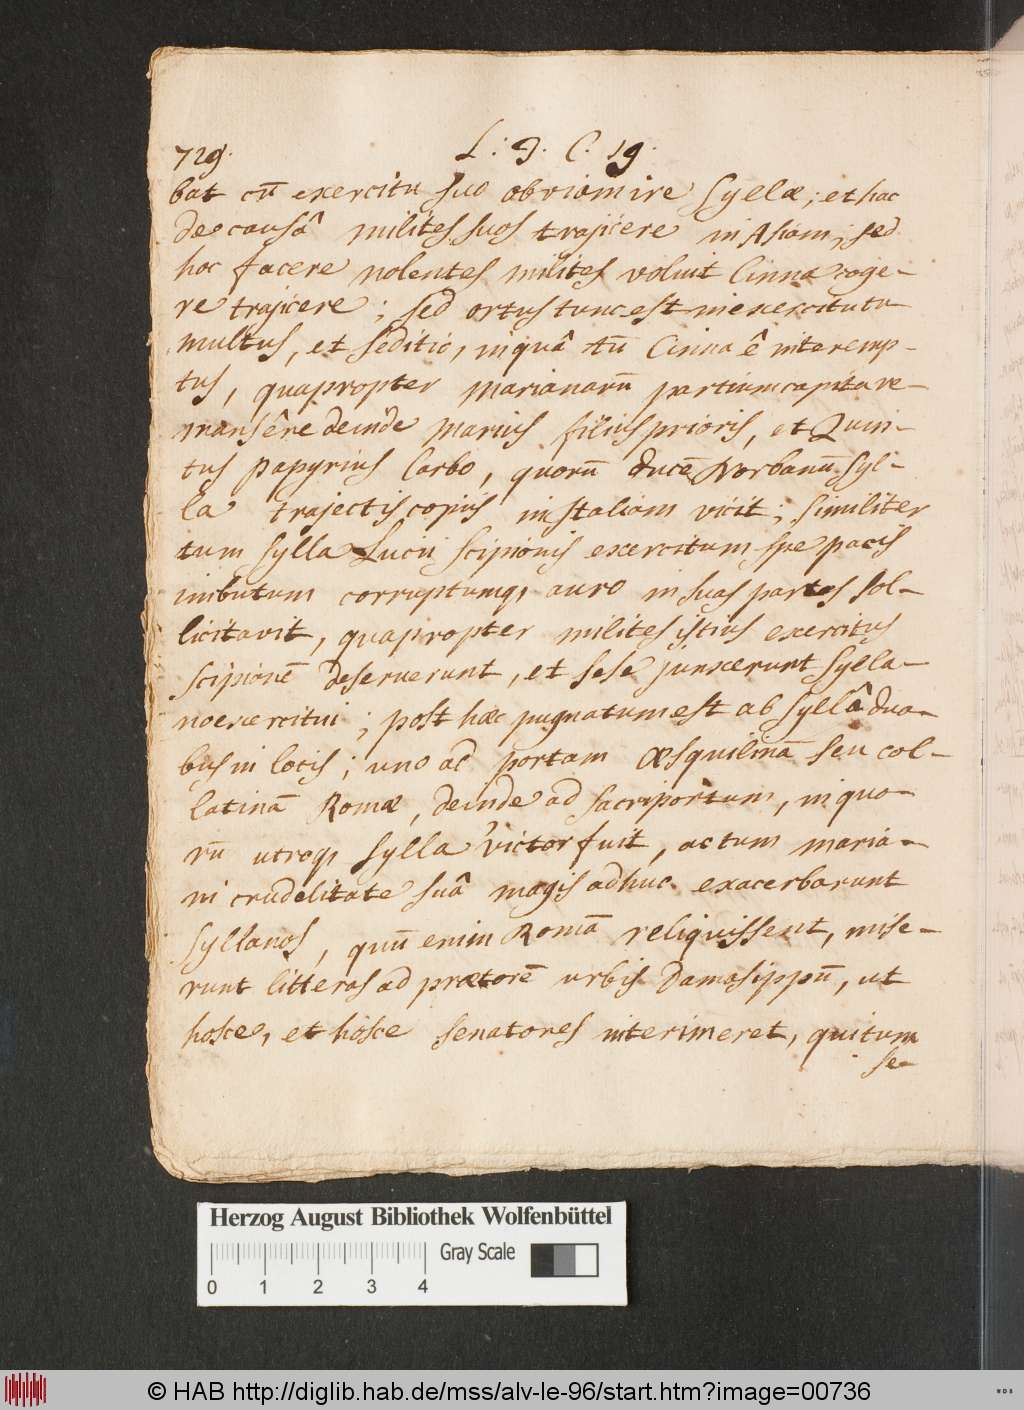 729.
L: I. C. 19.
bat cū exercitu suo obviam ire Syllæ; et hac
de causâ milites suos trajicere in Asiam, sed
hoc facere nolentes milites voluit Cinna coge-
re trajicere; sed ortus tunc est in exercitu tu
multus, et seditio, in quâ tū Cinna ê interemp-
tus, quapropter marianarū partium capita re-
mansêre deinde marius filius prioris, et Quin-
tus papyrius Carbo, quorū ducē Norbanū Syl-
la trajectis copiis in Italiam vicit; similiter
tum Sylla Lucii Scipionis exercitum spe pacis
imbutum corruptumq, auro in suas partes sol-
licitavit, quapropter milites istius exercitus
scipionē deseruerunt, et sese junxerunt Sylla-
no exercitui; post hæc pugnatum est ab Syllâ dua-
bus in locis; uno ad portam Æsquilinā seu col-
latinā Romæ, deinde ad sacriportum, in quo-
rū utroq, Sylla victor fuit, ac tum maria-
ni crudelitate suâ magis adhuc exacerbarunt
Syllanos, quū enim Romā reliquissent, mise-
runt litteras ad prætorē urbis Damasippū, ut
hosce, et hosce senatores interimeret, qui tum
se-
Herzog August Bibliothek Wolfenbüttel
Gray Scale
0 1 2 3 4
© HAB http://diglib.hab.de/mss/alv-le-96/start.htm?image=00736